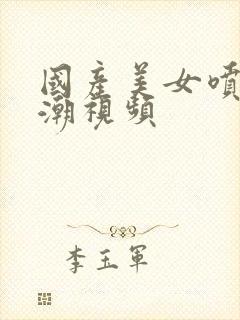 國產美女噴
潮視頻
李玉軍